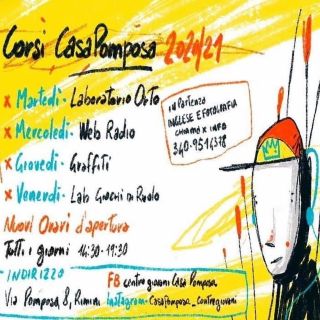 Corsi CasaPomposa 2020/21
x Martedì - Laboratorio Orto
x Mercoledì - Web Radio
x Giovedì - Graffiti
x Venerdì - Lab Giochi di Ruolo
in Partenza
INGLESE E FOTOGRAFIA
chiama x info
340-9514378
Nuovi Orari d'apertura
Tutti i giorni 14:30-19:30
INDIRIZZO
Via Pomposa 8, Rimini
FB centro giovani Casa Pomposa
Instagram - Casapomposa_centrogiovani